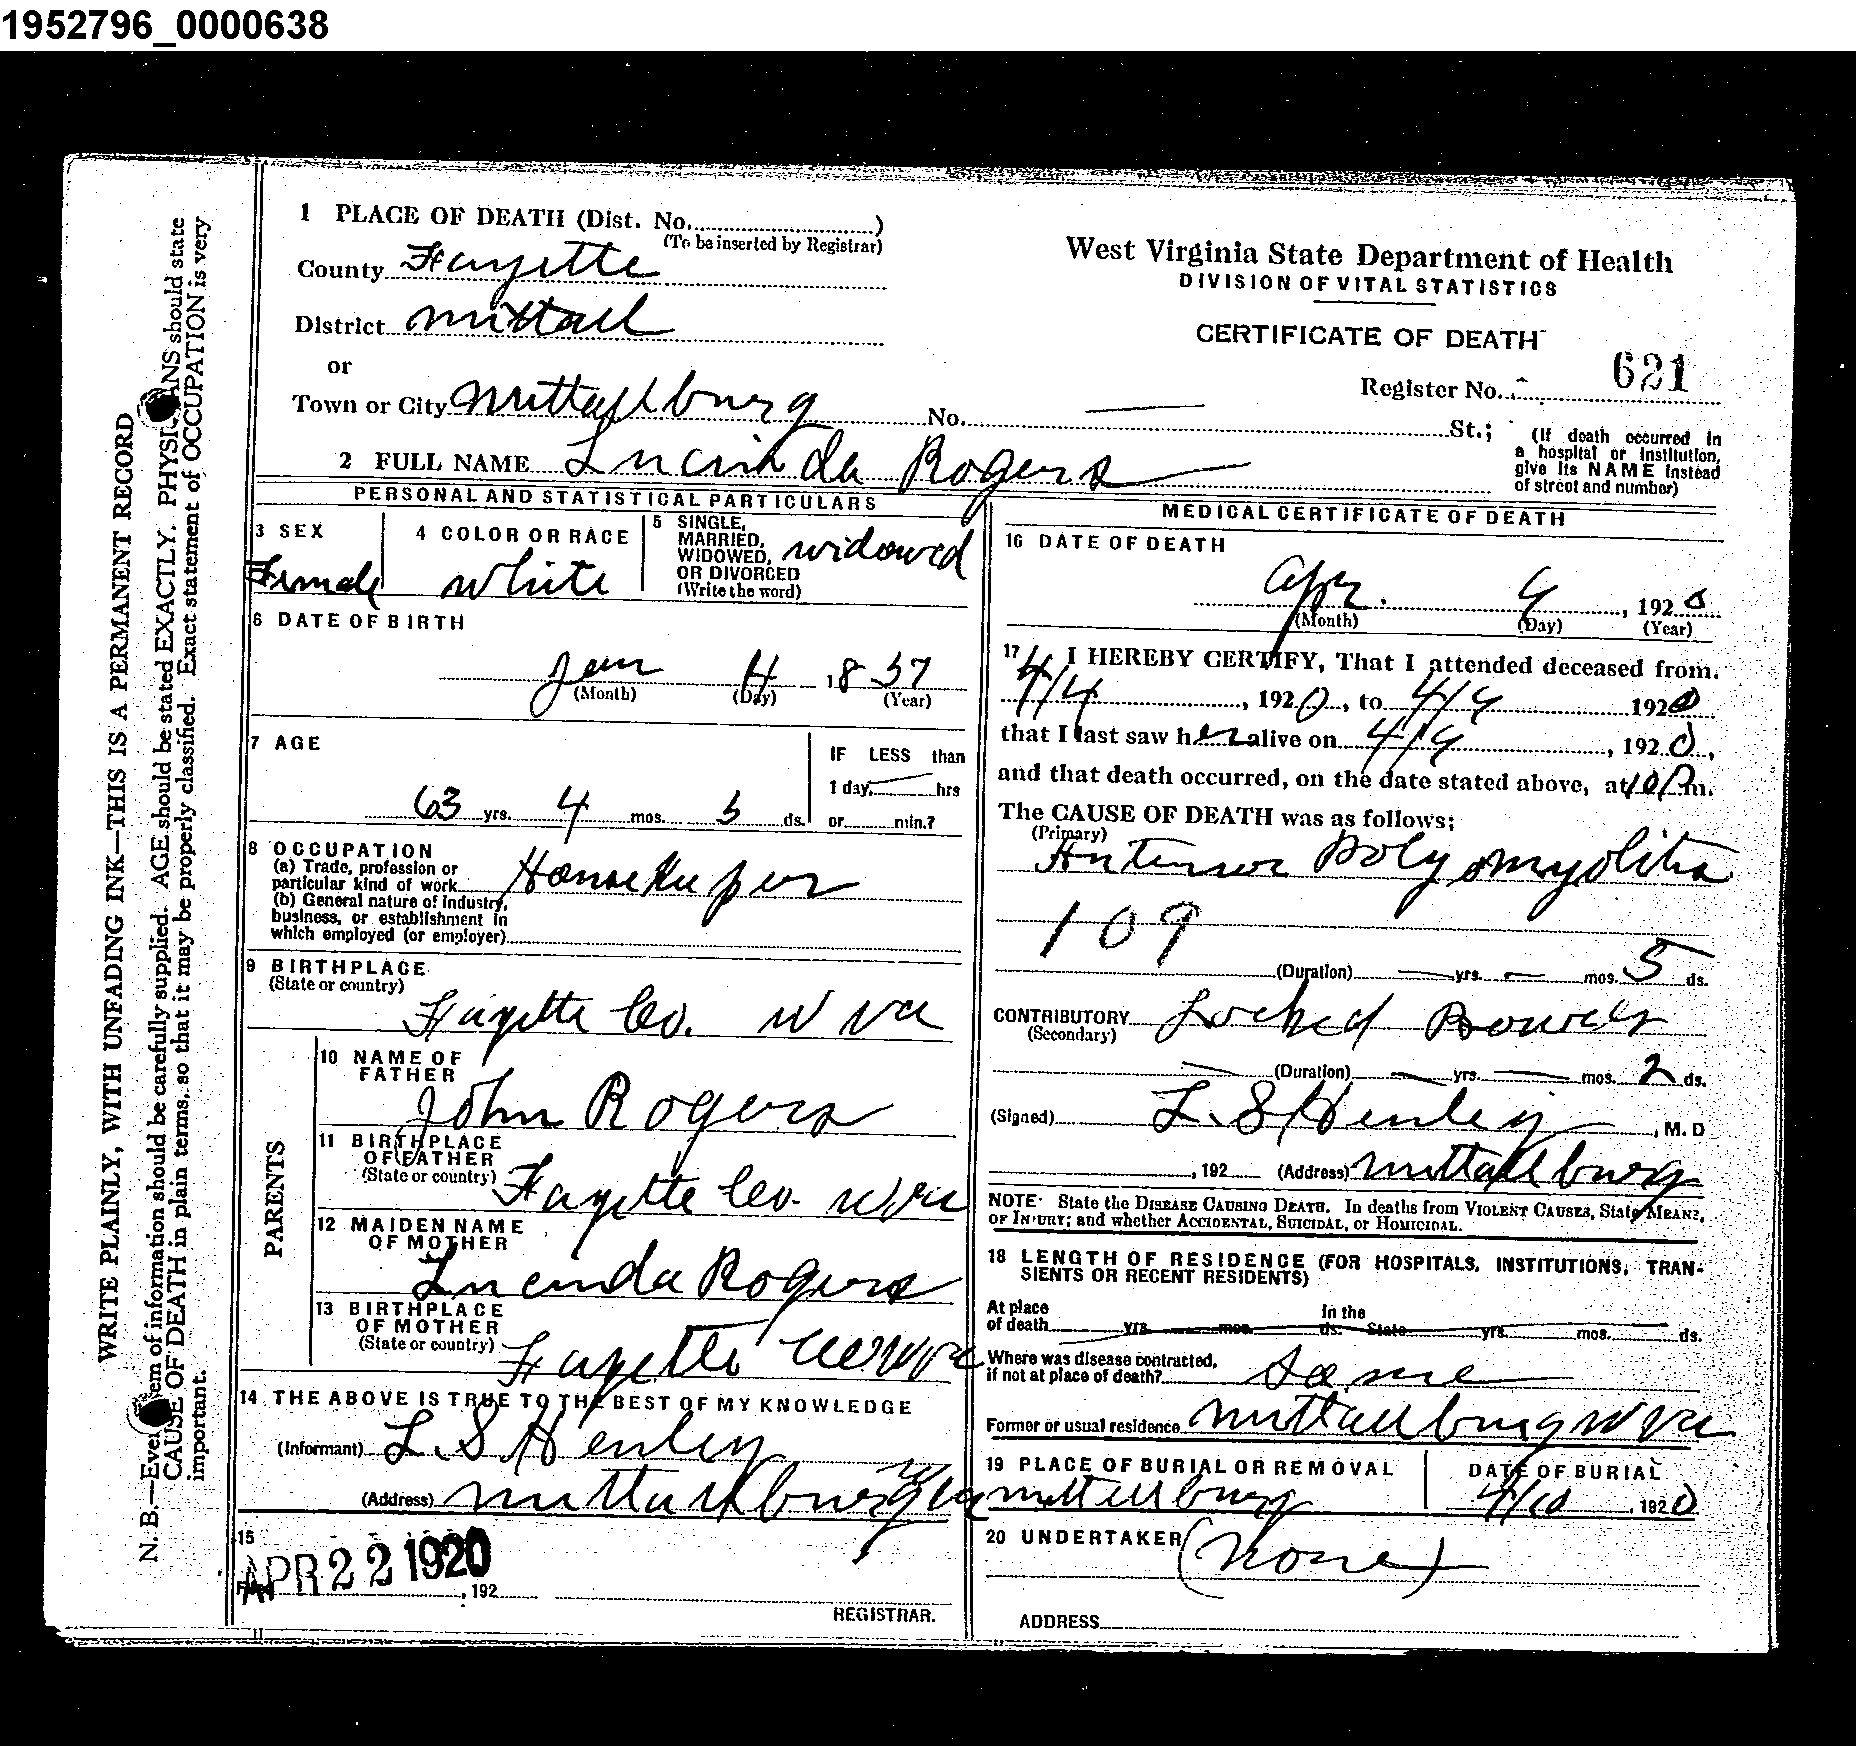 1952796_0000638
1 PLACE OF DEATH (Dist. No. )
(To be inserted by Registrar)
County Fayette
District Nuttall
or
Town or City Nuttallburg No. St.;
(If death occurred in
a hospital or institution,
give its NAME instead
of street and number)
2 FULL NAME Lucinda Rogers
West Virginia State Department of Health
DIVISION OF VITAL STATISTICS
CERTIFICATE OF DEATH
Register No. 621
PERSONAL AND STATISTICAL PARTICULARS
3 SEX
Female
4 COLOR OR RACE
White
5 SINGLE,
MARRIED,
WIDOWED,
OR DIVORCED
(Write the word)
widowed
6 DATE OF BIRTH
Jan 4 1857
(Month) (Day) (Year)
7 AGE
63 yrs. 4 mos. 5 ds.
IF LESS than
1 day, hrs
or min.?
8 OCCUPATION
(a) Trade, profession or
particular kind of work Housekeeper
(b) General nature of industry,
business, or establishment in
which employed (or employer)
9 BIRTHPLACE
(State or country)
Fayette Co. W Va
PARENTS
10 NAME OF
FATHER
John Rogers
11 BIRTHPLACE
OF FATHER
(State or country) Fayette Co. W Va
12 MAIDEN NAME
OF MOTHER
Lucinda Rogers
13 BIRTHPLACE
OF MOTHER
(State or country) Fayette Co W Va
14 THE ABOVE IS TRUE TO THE BEST OF MY KNOWLEDGE
(Informant) L. S Henley
(Address) Nuttallburg W Va
15
APR 22 1920
, 192
REGISTRAR.
MEDICAL CERTIFICATE OF DEATH
16 DATE OF DEATH
Apr. 9, 1920
(Month) (Day) (Year)
17 I HEREBY CERTIFY, That I attended deceased from
4/4, 1920, to 4/9 1920
that I last saw her alive on 4/9, 1920,
and that death occurred, on the date stated above, at 10 P m.
The CAUSE OF DEATH was as follows:
(Primary)
Anterior Polyomyolitis
109
(Duration) yrs. mos. 5 ds.
CONTRIBUTORY Locked Bowels
(Secondary)
(Duration) yrs. mos. 2 ds.
(Signed) L. S Henley, M. D
, 192 (Address) Nuttallburg
NOTE State the DISEASE CAUSING DEATH. In deaths from VIOLENT CAUSES, State MEANS,
OF INJURY; and whether ACCIDENTAL, SUICIDAL, or HOMICIDAL.
18 LENGTH OF RESIDENCE (FOR HOSPITALS, INSTITUTIONS, TRAN-
SIENTS OR RECENT RESIDENTS)
At place
of death yrs. mos. ds.
In the
State yrs. mos. ds.
Where was disease contracted,
if not at place of death? Same
Former or usual residence Nuttallburg W Va
19 PLACE OF BURIAL OR REMOVAL
Nuttallburg
DATE OF BURIAL
4/10, 1920
20 UNDERTAKER (None)
ADDRESS
WRITE PLAINLY, WITH UNFADING INK—THIS IS A PERMANENT RECORD
N. B.—Every item of information should be carefully supplied. AGE should be stated EXACTLY. PHYSICIANS should state
CAUSE OF DEATH in plain terms, so that it may be properly classified. Exact statement of OCCUPATION is very
important.